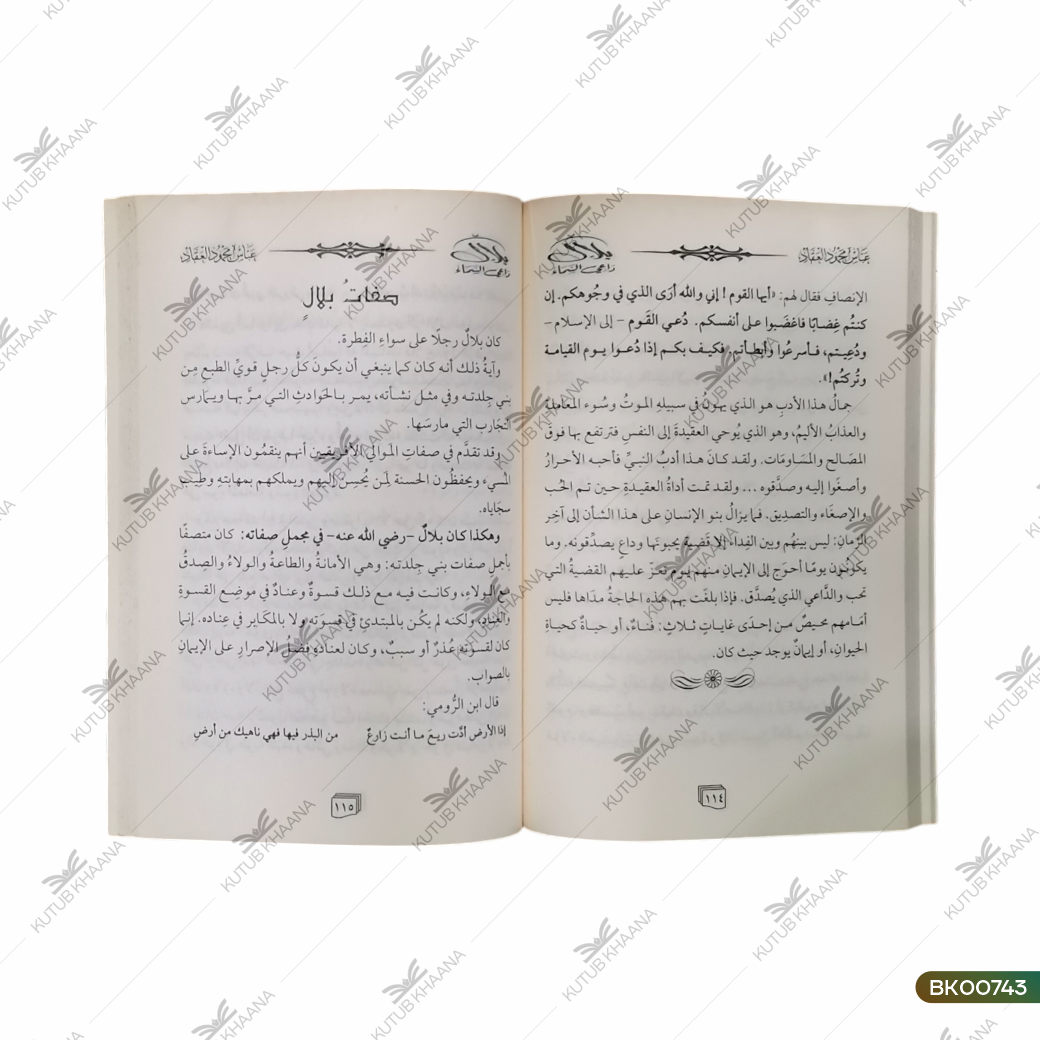 عباس محمود العقاد
بلال
داعي السماء
الإنصافِ فقال لهم: «أيها القوم! إني والله أرَى الذي في وجُوهكم. إن
كنتُم غِضابًا فاغضَبوا على أنفسكم. دُعي القَوم – إلى الإسلام –
ودُعِيتم، فأسرعُوا وأبطأتم فكيف بكم إذا دُعوا يوم القيامة
وتُركتُم!».
جمالُ هذا الأدبِ هو الذي يهونُ في سبيلهِ الموتُ وسُوء المعاملةِ
والعذابُ الأليمُ، وهو الذي يُوحي العقيدةَ إلى النفسِ فترتفع بها فوقَ
المصَالح والمسَاومَات. ولقد كانَ هذا أدبُ النبيِّ فأحبه الأحرارُ
وأصغَوا إليه وصدَّقوه ... ولقد تمت أداةُ العقيدةِ حين تم الحُب
والإصغَاء والتصدِيق. فما يزالُ بنو الإنسانِ على هذا الشأن إلى آخِر
الزمانِ: ليس بينهُم وبين الفِداء إلا قَضية يحبونَها وداعٍ يصدِّقونه. وما
يكونُون يومًا أحوَج إلى الإيمانِ منهم يوم تعزّ عليهم القضيةُ التي
تحب والدَّاعي الذي يُصدَّق. فإذا بلغَت بهم هذه الحاجةُ مدَاها فليس
أمَامهم محيصٌ من إحدَى غاياتٍ ثلاثٍ: فَناءٌ، أو حياةٌ كحياةِ
الحيوانِ، أو إيمانٌ يوجد حيث كان.
١١٤
بلال
داعي السماء
عباس محمود العقاد
صفاتُ بلالٍ
كان بلالٌ رجلًا على سواءِ الفِطرة.
وآيةُ ذلك أنه كان كما ينبغي أن يكونَ كلُّ رجلٍ قويِّ الطبعِ مِن
بَني جِلدته وفي مثل نشأته، يمر بالحَوادثِ التي مرَّ بها ويمارس
التجَارب التي مارسَها.
وقد تقدَّم في صفاتِ الموالي الأفريقيين أنهم ينقمُون الإساءةَ على
المُسيء ويحفظُون الحسنة لِمَن يُحسِنُ إليهم ويملكهم بمهابتهِ وطِيب
سجَاياه.
وهكذا كان بلالٌ –رضي الله عنه– في مجملِ صفاته: كان متصفًا
بأجملِ صفات بني جِلدته: وهي الأمانةُ والطاعةُ والولاءُ والصِدقُ
مع الولاءِ، وكانت فيه مع ذلك قسوةٌ وعنادٌ في موضِع القسوةِ
والعِنادِ، ولكنه لم يكُن بالمبتدئِ في قسوتهِ ولا بالمكَابر في عِناده. إنما
كان لقسوتهِ عُذرٌ أو سببٌ، وكان لعنادهِ فضْلُ الإصرارِ على الإيمانِ
بالصواب.
قال ابن الرُّومي:
إذا الأرضُ أدَّت ريعَ ما أنت زارعٌ من البذر فيها فهي ناهيك من أرضِ
١١٥
KUTUB KHAANA
BK00743